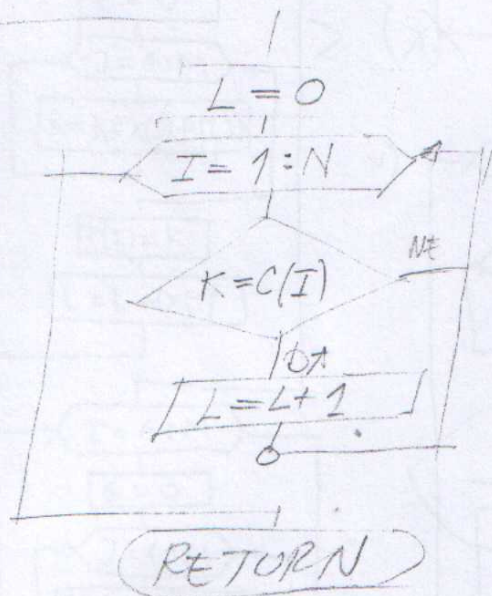 L = 0
I = 1 : N
K = C(I)
NE
DA
L = L + 1
RETURN